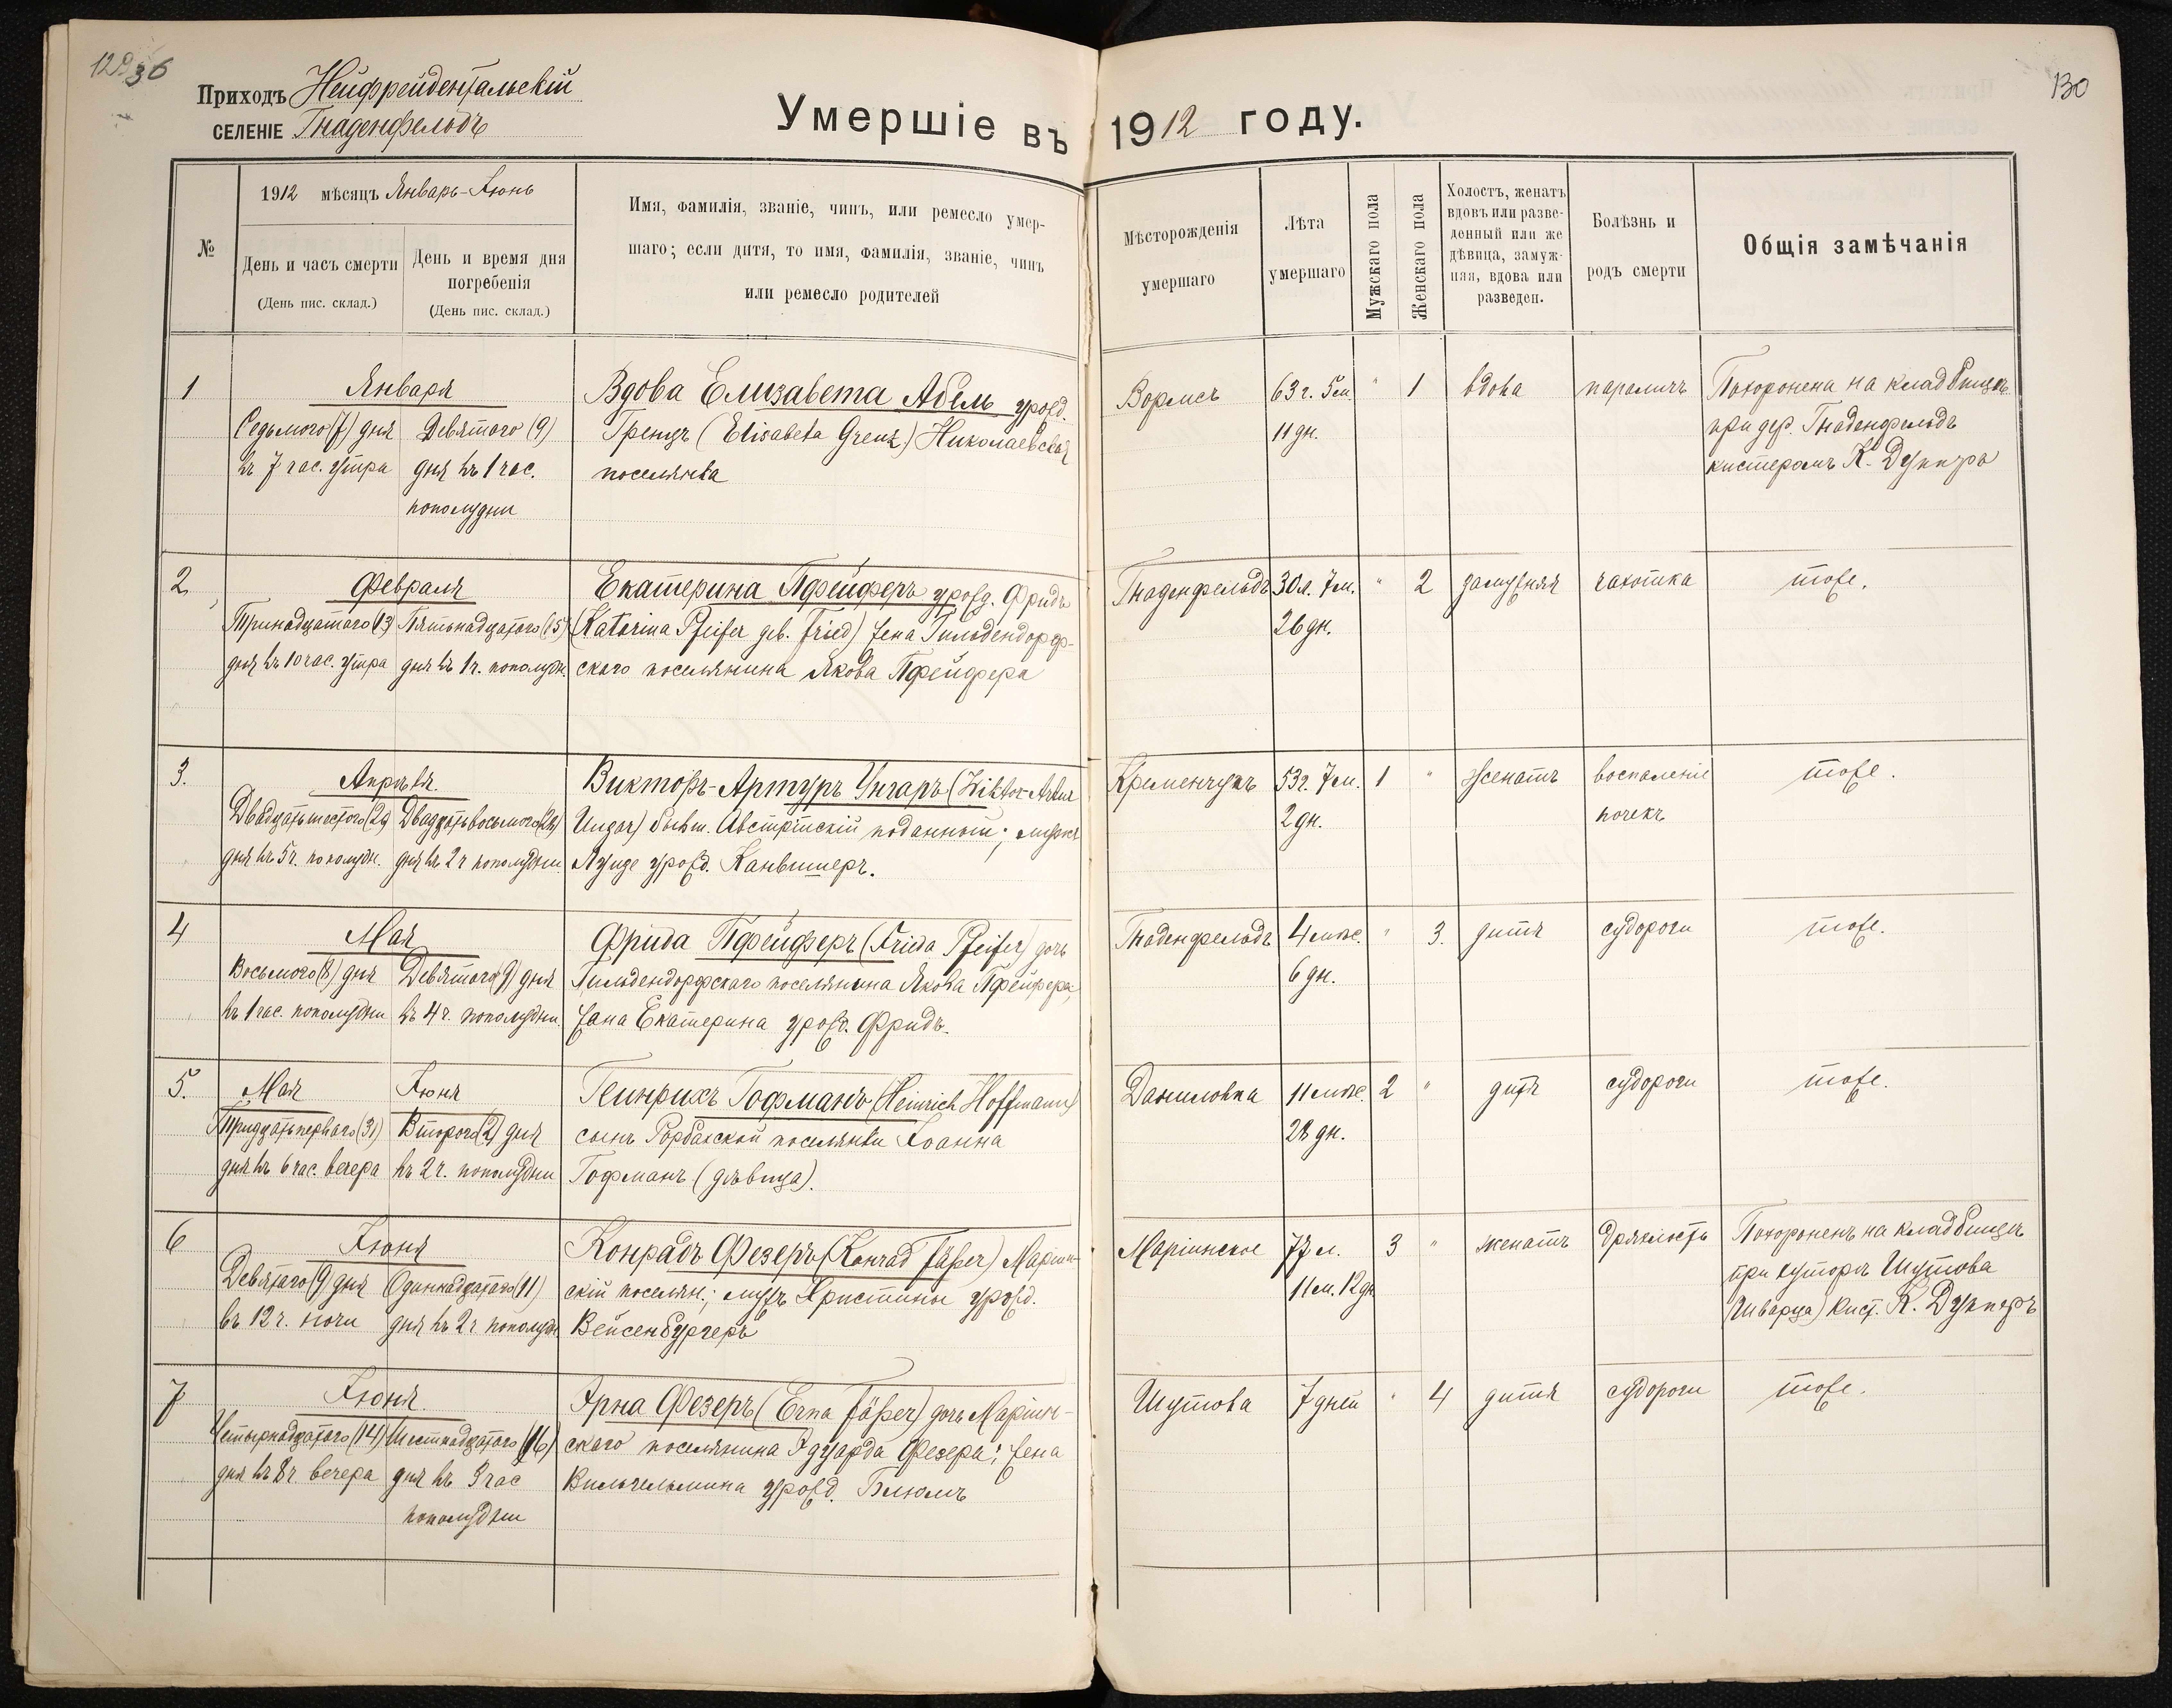 129 36
Приходъ Нейфрейдентальскій
СЕЛЕНІЕ Гнаденфельдъ
Умершіе въ 1912 году.
130
№
1912 мѣсяцъ Январь-Іюнь
День и часъ смерти
(День пис. склад.)
День и время дня
погребенія
(День пис. склад.)
Имя, фамилія, званіе, чинъ, или ремесло умер-
шаго; если дитя, то имя, фамилія, званіе, чинъ
или ремесло родителей
Мѣсторожденія
умершаго
Лѣта
умершаго
Мужскаго пола
Женскаго пола
Холостъ, женатъ
вдовъ или разве-
денный или же
дѣвица, замуж-
няя, вдова или
разведен.
Болѣзнь и
родъ смерти
Общія замѣчанія
1
Января
Седьмого (7) дня
въ 7 час. утра
Девятаго (9)
дня въ 1 час.
пополудни
Вдова Елизавета Абель урожд.
Гренцъ (Elisabeta Grenz) Николаевская
поселянка
Вормсъ
63 г. 5 м.
11 дн.
" 1
вдова
параличъ
Похоронена на кладбищѣ
при дер. Гнаденфельдъ
кистеромъ К. Дункеръ
2
Февраля
Тринадцатаго (13)
дня въ 10 час. утра
Пятьнадцатаго (15)
дня въ 1 ч. пополудн.
Екатерина Пфейферъ урожд. Фридъ
(Katarina Pfeifer geb. Fried) жена Гильдендорф-
скаго поселянина Якова Пфейфера
Гнаденфельдъ
30 л. 7 м.
26 дн.
" 2
замужняя
чахотка
тоже.
3.
Апрѣля.
Двадцатьшестого (26)
дня въ 5 ч. пополудн.
Двадцатьвосьмого (28)
дня въ 2 ч пополудни.
Викторъ-Артуръ Унгаръ (Viktor-Artur
Ungar) бывш. Австрійскій поданный; мужъ
урожд.
Кременчугъ
53 г. 7 м.
2 дн.
1 "
женатъ
воспаленіе
почекъ
тоже.
4
Мая
Восьмого (8) дня
въ 1 час. пополудни
Девятаго (9) дня
въ 4 ч. пополудни.
Фрида Пфейферъ (Frieda Pfeifer) дочь
Гильдендорфскаго поселянина Якова Пфейфера,
жена Екатерина урожд. Фридъ.
Гнаденфельдъ
4 мѣс.
6 дн.
" 3.
дитя
судороги
тоже.
5.
Мая
Тридцатьперваго (31)
дня въ 6 час. вечера
Іюня
Второго (2) дня
въ 2 ч. пополудни
Гейнрихъ Гофманъ (Heinrich Hoffmann)
сынъ Рорбахской поселянки Іоанна
Гофманъ (дѣвица).
Даниловка
11 мѣс.
28 дн.
2 "
дитя
судороги
тоже.
6
Іюня
Девятаго (9) дня
въ 12 ч. ночи
Одиннадцатаго (11)
дня въ 2 ч пополудн
Конрадъ Фезеръ (Konrad Fäßer) Маріин-
скій поселян.; мужъ Христины урожд.
Вейсенбургеръ
Маріинское
77 л.
11 м. 12 дн
3 "
женатъ
дряхлость
Похороненъ на кладбищѣ
при хуторѣ Шутова
(Шварца) кист. К. Дункеръ
7
Іюня.
Четырнадцатаго (14)
дня въ 8 ч. вечера
Шестнадцатаго (16)
дня въ 3 час
пополудни
Эрна Фезеръ (Erna Fäßer) дочь Маріин-
скаго поселянина Эдуарда Фезера; жена
Вильгельмина урожд. Блюмъ
Шутова
7 дней
" 4
дитя
судороги
тоже.